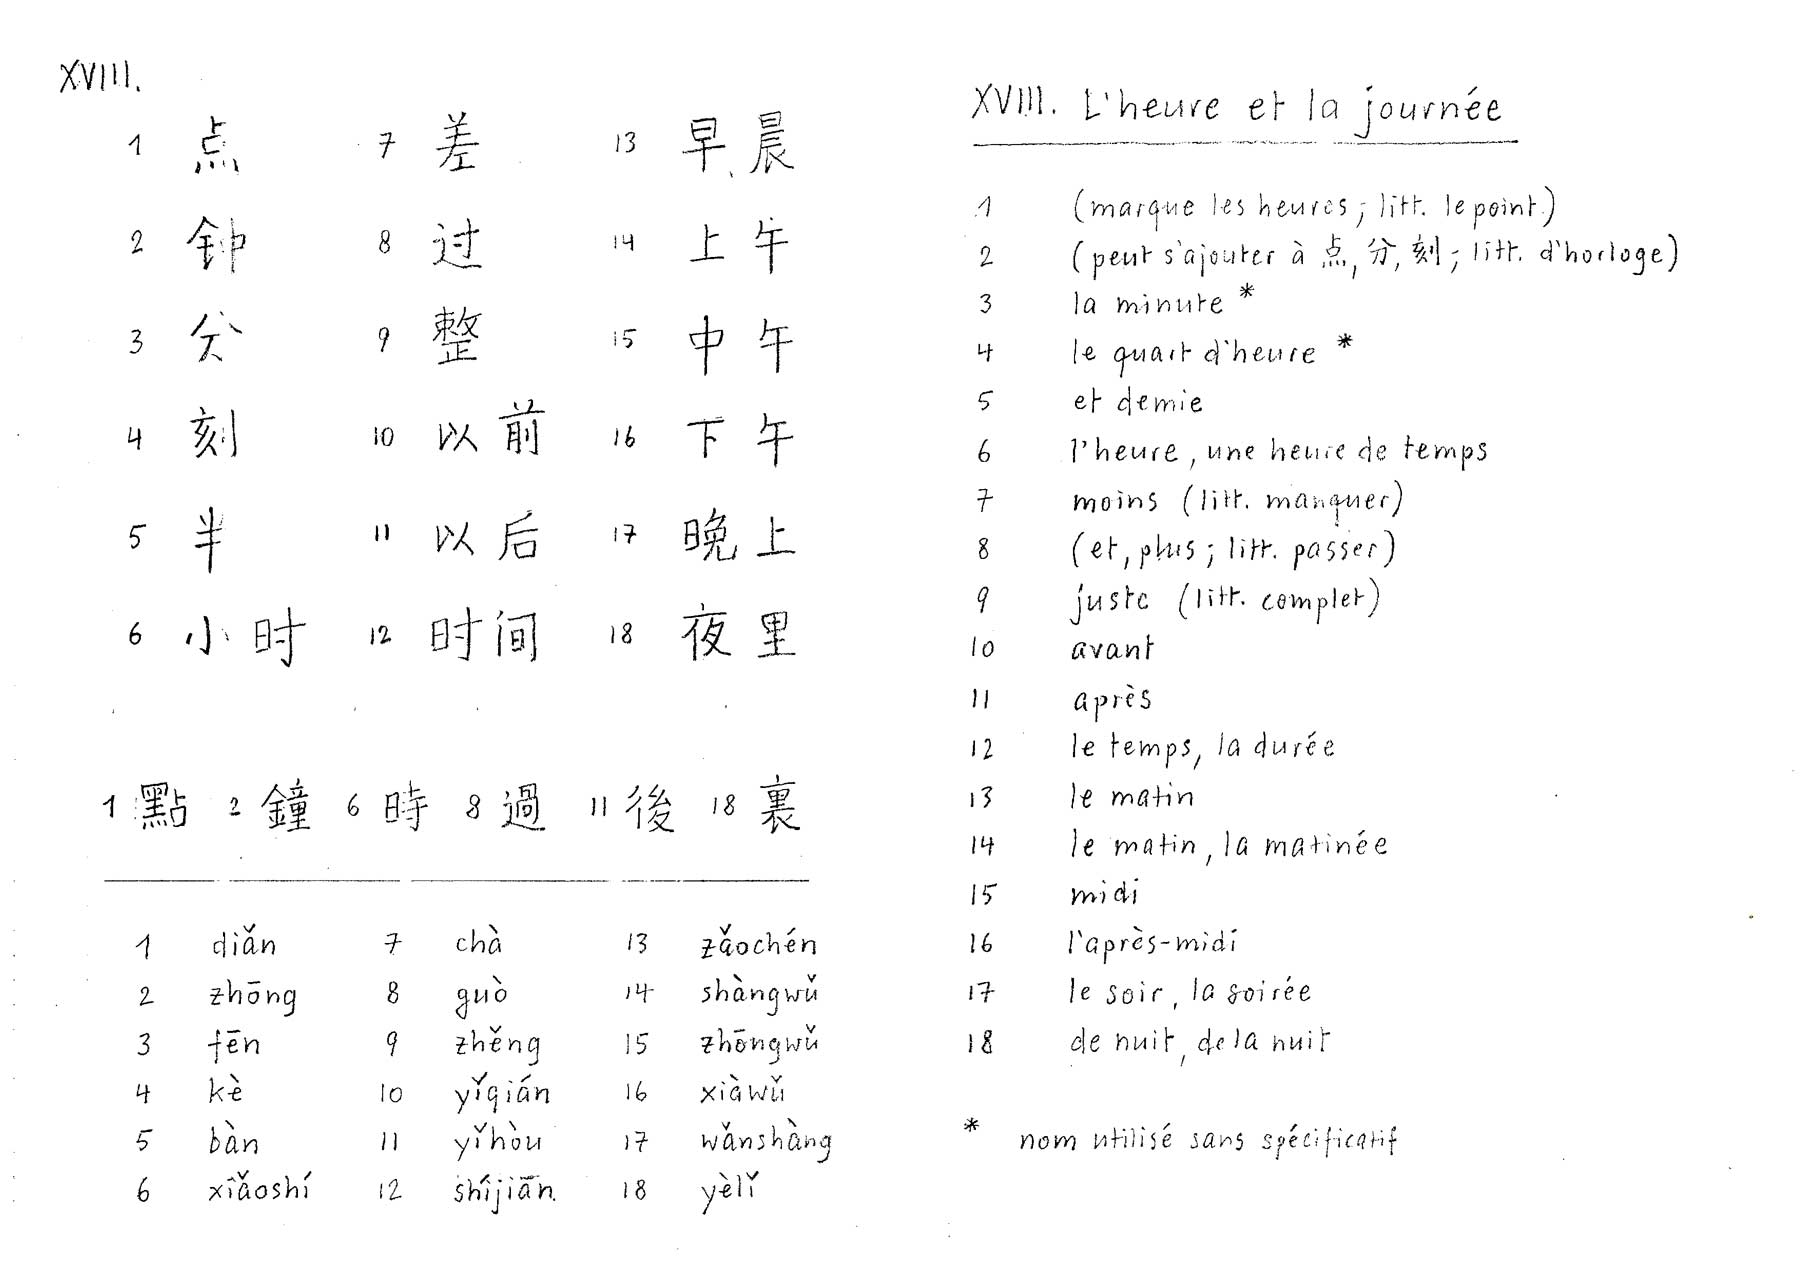 XVIII.
1 点 7 差 13 早晨
2 钟 8 过 14 上午
3 分 9 整 15 中午
4 刻 10 以前 16 下午
5 半 11 以后 17 晚上
6 小时 12 时间 18 夜里
1 點 2 鐘 6 時 8 過 11 後 18 裏
1 diǎn 7 chà 13 zǎochén
2 zhōng 8 guò 14 shàngwǔ
3 fēn 9 zhěng 15 zhōngwǔ
4 kè 10 yǐqián 16 xiàwǔ
5 bàn 11 yǐhòu 17 wǎnshàng
6 xiǎoshí 12 shíjiān 18 yèlǐ
XVIII. L'heure et la journée
1 (marque les heures; litt. le point)
2 (peut s'ajouter à 点, 分, 刻; litt. d'horloge)
3 la minute *
4 le quart d'heure *
5 et demie
6 l'heure, une heure de temps
7 moins (litt. manquer)
8 (et, plus; litt. passer)
9 juste (litt. complet)
10 avant
11 après
12 le temps, la durée
13 le matin
14 le matin, la matinée
15 midi
16 l'après-midi
17 le soir, la soirée
18 de nuit, de la nuit
* nom utilisé sans spécificatif